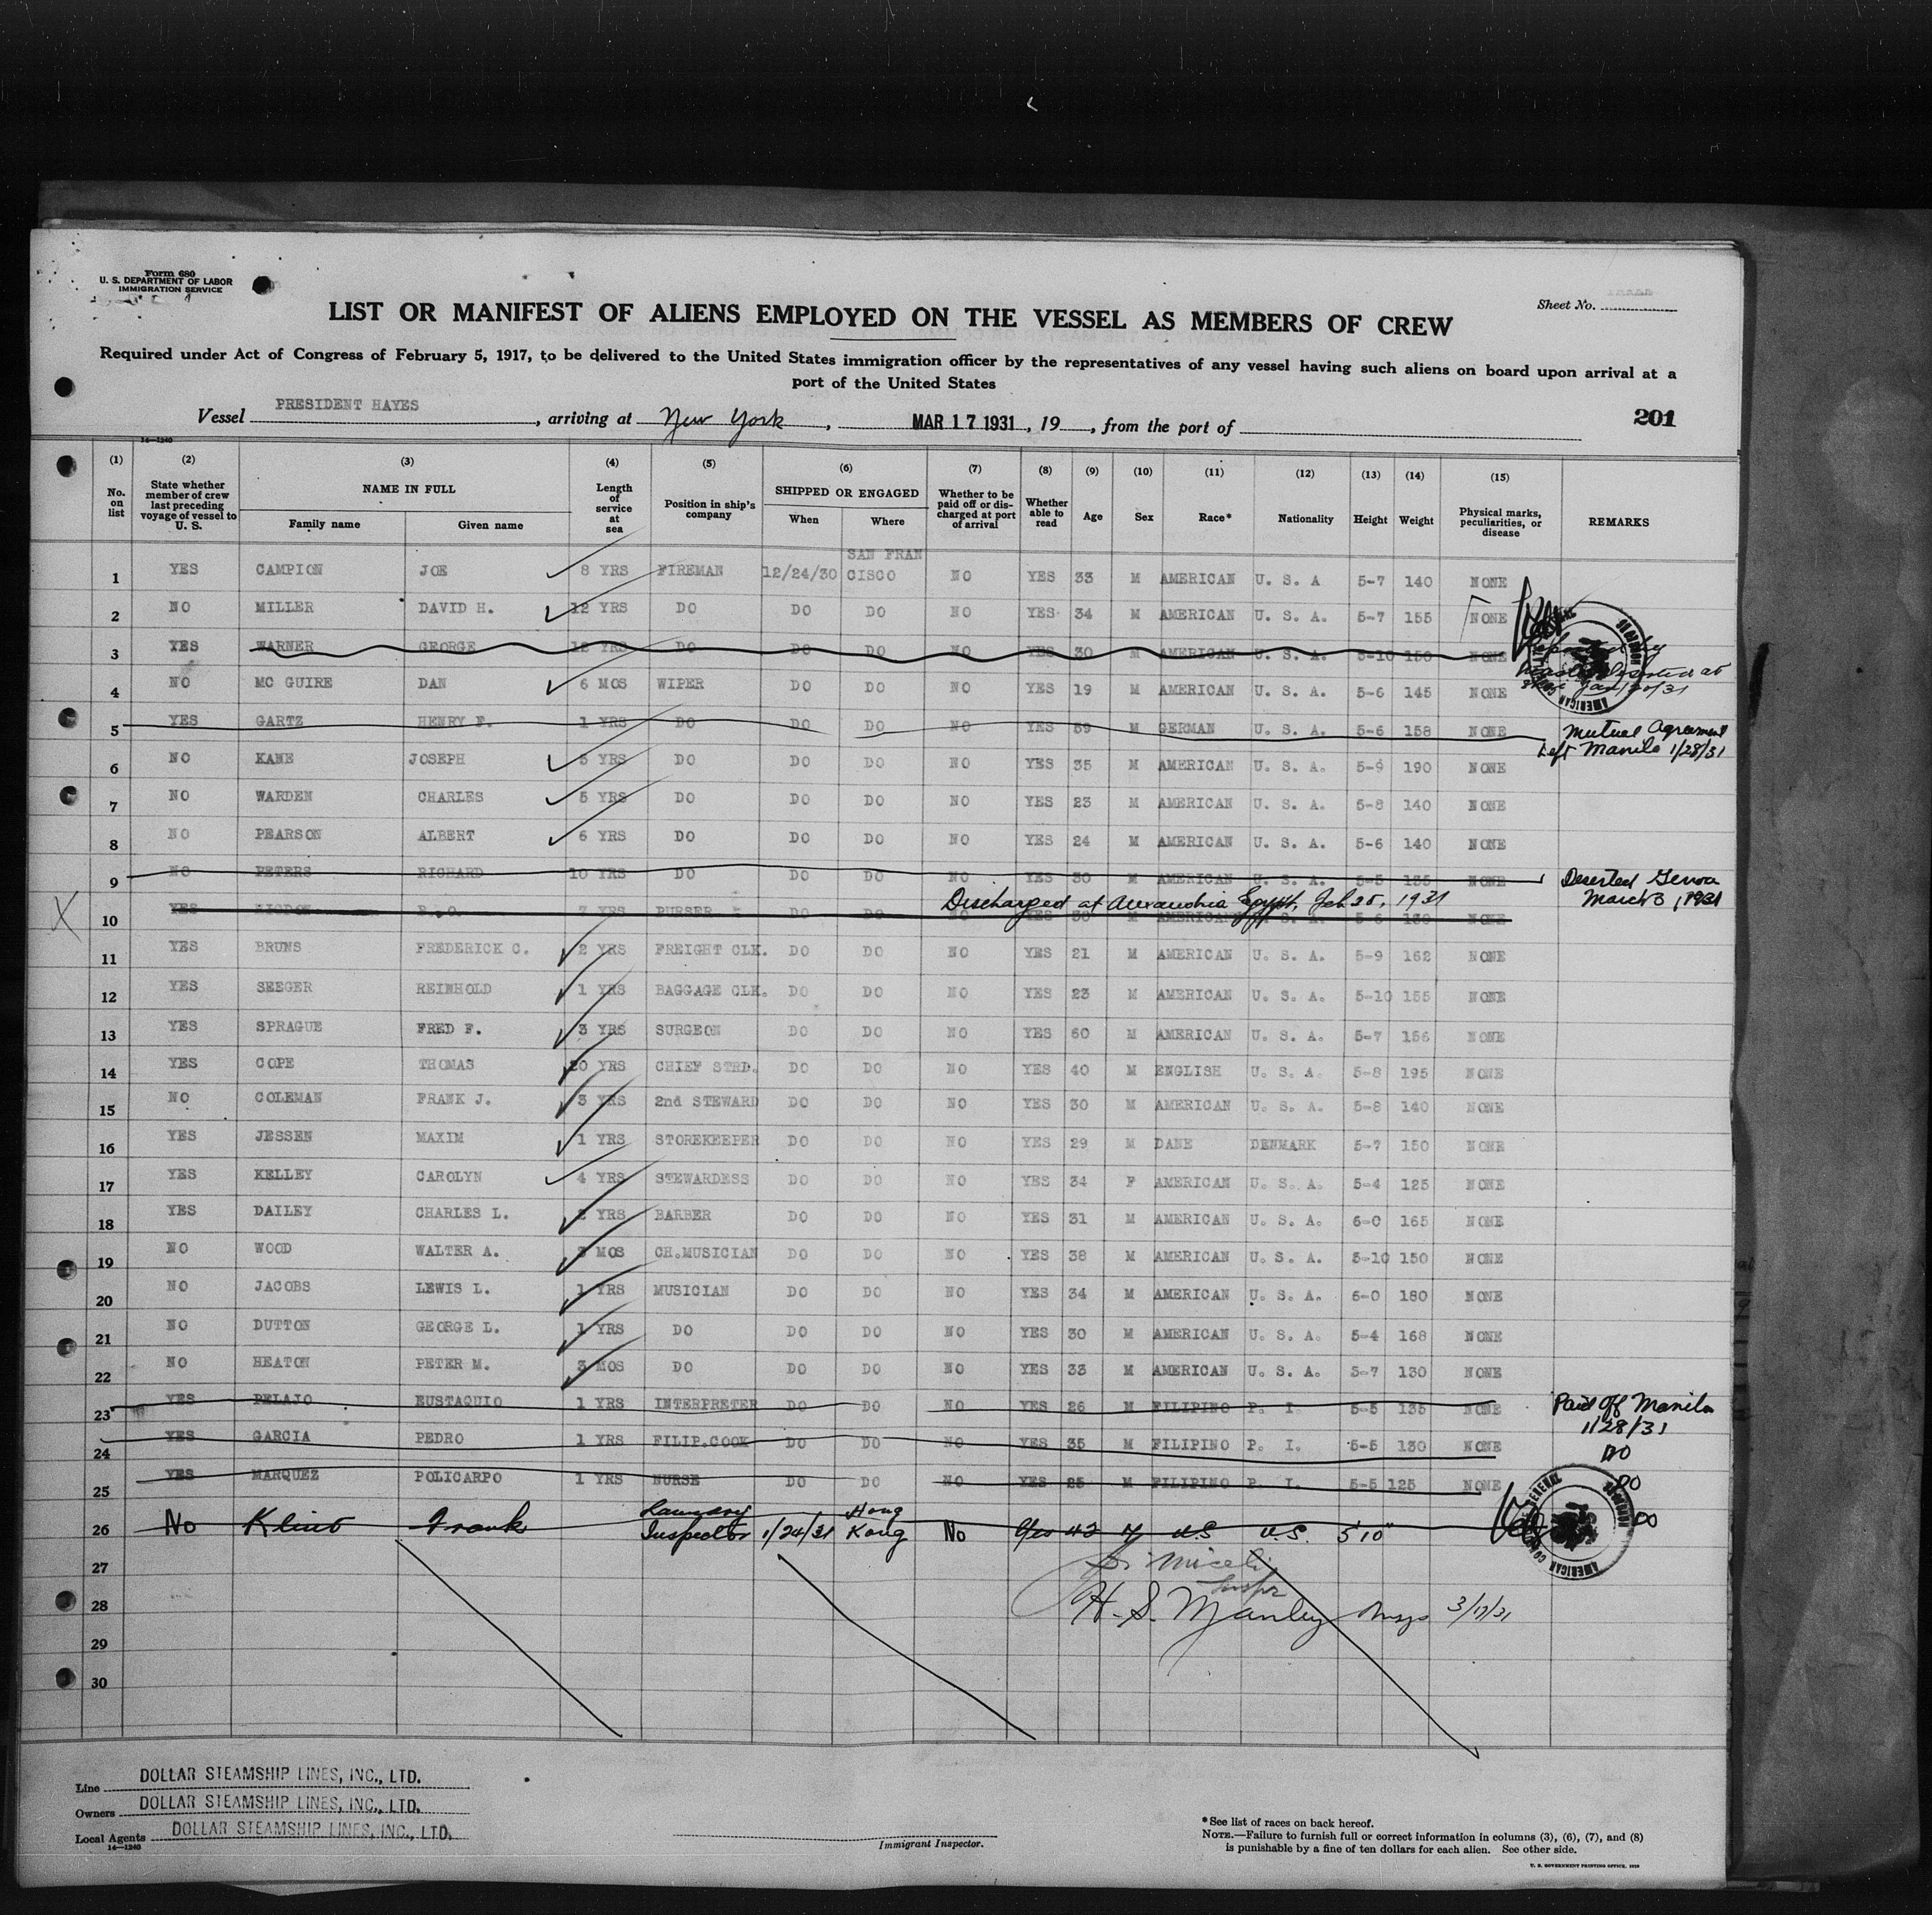 Form 680
U. S. DEPARTMENT OF LABOR
IMMIGRATION SERVICE
Sheet No.
LIST OR MANIFEST OF ALIENS EMPLOYED ON THE VESSEL AS MEMBERS OF CREW
Required under Act of Congress of February 5, 1917, to be delivered to the United States immigration officer by the representatives of any vessel having such aliens on board upon arrival at a
port of the United States
Vessel PRESIDENT HAYES, arriving at New York, MAR 17 1931, 19, from the port of
201
14—1240
(1) (2) (3) (4) (5) (6) (7) (8) (9) (10) (11) (12) (13) (14) (15)
No. on list State whether member of crew last preceding voyage of vessel to U. S. NAME IN FULL Family name Given name Length of service at sea Position in ship's company SHIPPED OR ENGAGED When Where Whether to be paid off or discharged at port of arrival Whether able to read Age Sex Race* Nationality Height Weight Physical marks, peculiarities, or disease REMARKS
1 YES CAMPION JOE 8 YRS FIREMAN 12/24/30 SAN FRAN CISCO NO YES 33 M AMERICAN U. S. A 5-7 140 NONE
2 NO MILLER DAVID H. 12 YRS DO DO DO NO YES 34 M AMERICAN U. S. A. 5-7 155 NONE
3 YES WARNER GEORGE 12 YRS DO DO DO NO YES 30 M AMERICAN U. S. A. 5-10 150 NONE
4 NO MC GUIRE DAN 6 MOS WIPER DO DO NO YES 19 M AMERICAN U. S. A. 5-6 145 NONE
5 YES GARTZ HENRY F. 1 YRS DO DO DO NO YES 59 M GERMAN U. S. A. 5-6 158 NONE Mutual Agreement
Left Manila 1/28/31
6 NO KANE JOSEPH 5 YRS DO DO DO NO YES 35 M AMERICAN U. S. A. 5-9 190 NONE
7 NO WARDEN CHARLES 5 YRS DO DO DO NO YES 23 M AMERICAN U. S. A. 5-8 140 NONE
8 NO PEARSON ALBERT 6 YRS DO DO DO NO YES 24 M AMERICAN U. S. A. 5-6 140 NONE
9 NO PETERS RICHARD 10 YRS DO DO DO NO YES 30 M AMERICAN U. S. A. 5-5 135 NONE Deserted Genoa
March 3, 1931
Discharged at Alexandria Egypt, Feb 25, 1931
10 YES 7 YRS PURSER DO DO NO YES 30 M AMERICAN U. S. A. 5-6 NONE
11 YES BRUNS FREDERICK C. 2 YRS FREIGHT CLK. DO DO NO YES 21 M AMERICAN U. S. A. 5-9 162 NONE
12 YES SEEGER REINHOLD 1 YRS BAGGAGE CLK. DO DO NO YES 23 M AMERICAN U. S. A. 5-10 155 NONE
13 YES SPRAGUE FRED F. 3 YRS SURGEON DO DO NO YES 60 M AMERICAN U. S. A. 5-7 156 NONE
14 YES COPE THOMAS 20 YRS CHIEF STRD. DO DO NO YES 40 M ENGLISH U. S. A. 5-8 195 NONE
15 NO COLEMAN FRANK J. 3 YRS 2nd STEWARD DO DO NO YES 30 M AMERICAN U. S. A. 5-8 140 NONE
16 YES JESSEN MAXIM 1 YRS STOREKEEPER DO DO NO YES 29 M DANE DENMARK 5-7 150 NONE
17 YES KELLEY CAROLYN 4 YRS STEWARDESS DO DO NO YES 34 F AMERICAN U. S. A. 5-4 125 NONE
18 YES DAILEY CHARLES L. 2 YRS BARBER DO DO NO YES 31 M AMERICAN U. S. A. 6-0 165 NONE
19 NO WOOD WALTER A. 3 MOS CH.MUSICIAN DO DO NO YES 38 M AMERICAN U. S. A. 5-10 150 NONE
20 NO JACOBS LEWIS L. 1 YRS MUSICIAN DO DO NO YES 34 M AMERICAN U. S. A. 6-0 180 NONE
21 NO DUTTON GEORGE L. 1 YRS DO DO DO NO YES 30 M AMERICAN U. S. A. 5-4 168 NONE
22 NO HEATON PETER M. 3 MOS DO DO DO NO YES 33 M AMERICAN U. S. A. 5-7 130 NONE
23 YES PELAJO EUSTAQUIO 1 YRS INTERPRETER DO DO NO YES 26 M FILIPINO P. I. 5-5 135 NONE Paid Off Manila
1/28/31
24 YES GARCIA PEDRO 1 YRS FILIP.COOK DO DO NO YES 35 M FILIPINO P. I. 5-5 130 NONE DO
25 YES MARQUEZ POLICARPO 1 YRS NURSE DO DO NO YES 25 M FILIPINO P. I. 5-5 125 NONE DO
26 No Frank Laundry Inspector 1/24/31 Hong Kong No Yes 42 M U.S U.S. 5'10" DO
27
28 H. S. Manley 3/17/31
29
30
Line DOLLAR STEAMSHIP LINES, INC., LTD.
Owners DOLLAR STEAMSHIP LINES, INC., LTD.
Local Agents DOLLAR STEAMSHIP LINES, INC., LTD.
14—1240
Immigrant Inspector.
*See list of races on back hereof.
NOTE.—Failure to furnish full or correct information in columns (3), (6), (7), and (8)
is punishable by a fine of ten dollars for each alien. See other side.